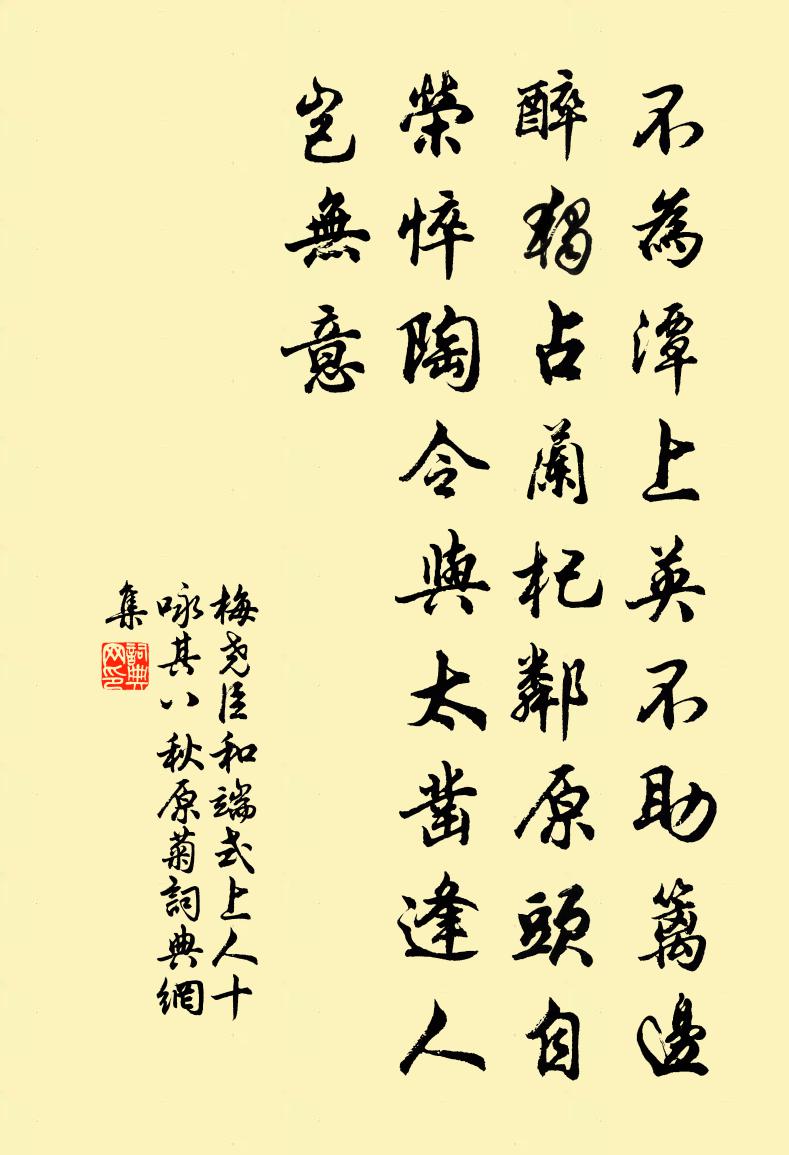 不為潭上英不助籬邊
醉獨占蘭杞鄰原頭自
榮悴陶令與太鑿逢人
豈無意
梅堯臣和端式上人十
咏其八秋原菊詞典網
集
詞典网印